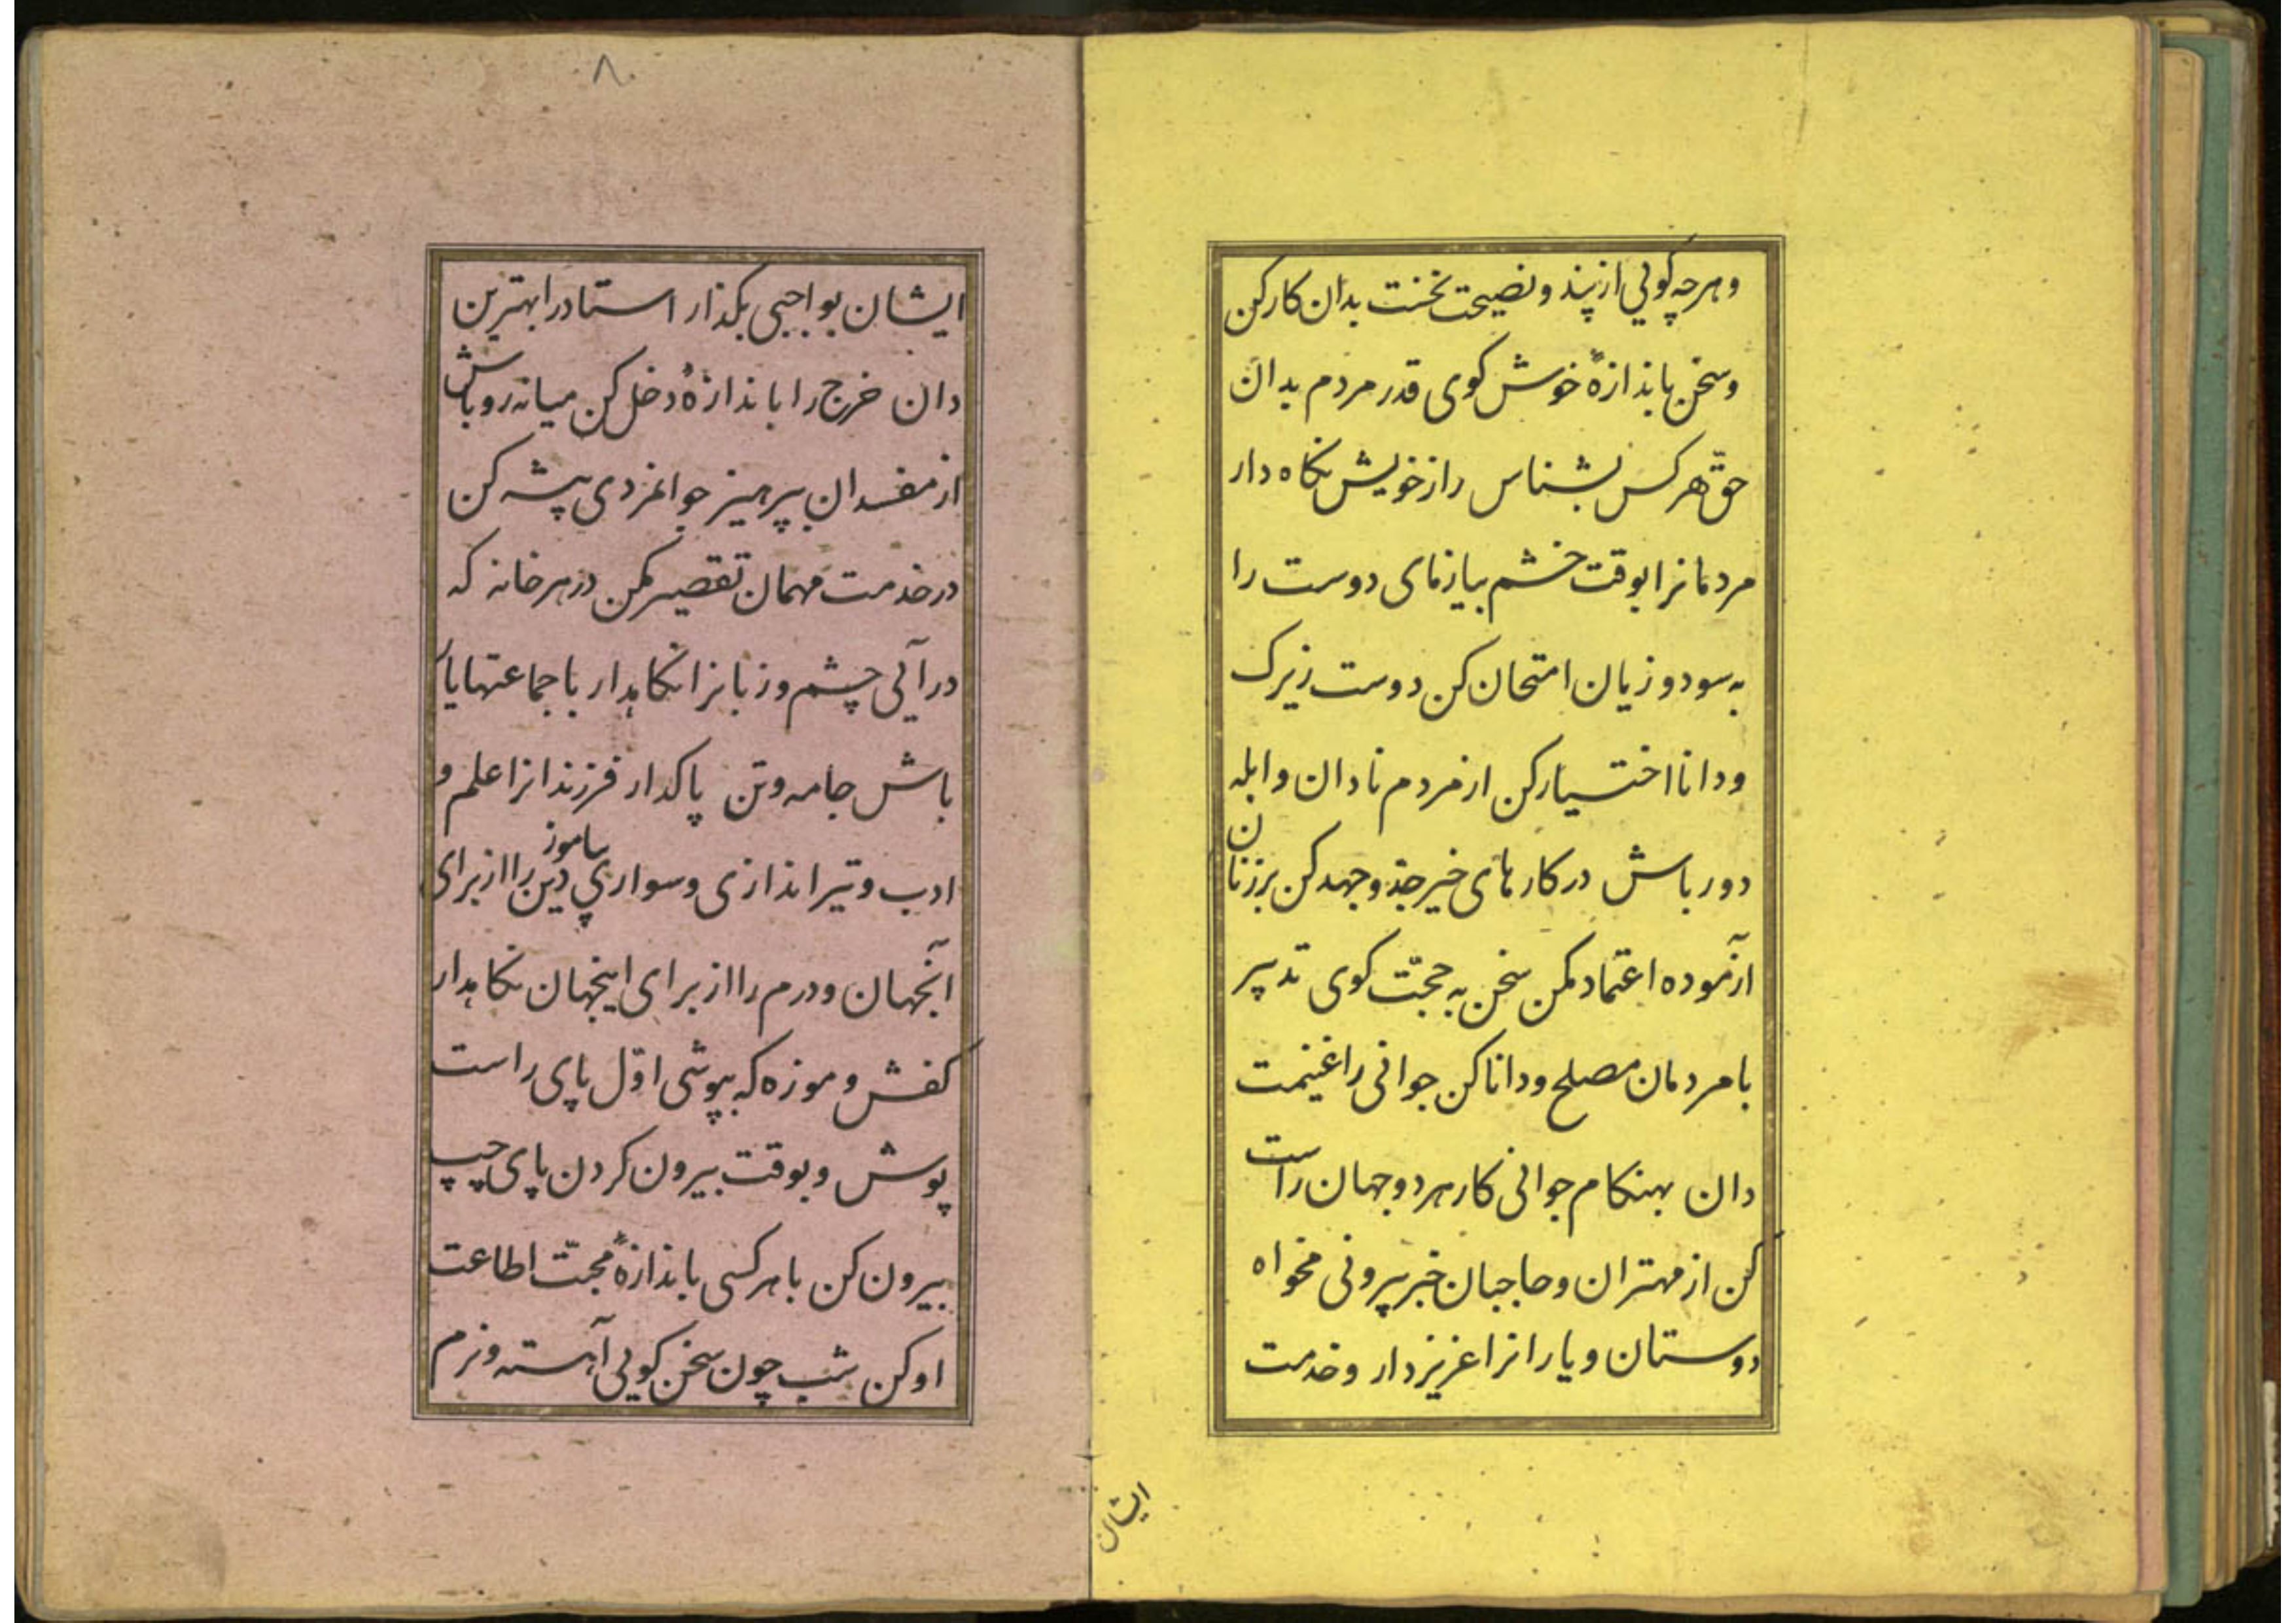 وهرچه کویی از پند و نصیحت نخست بدان کار کن
و سخن باندازهٔ خوش کوی قدر مردم بدان
حقّ هر کس بشناس راز خویش نکاه دار
مردمانرا بوقت خشم بیازمای دوست را
به سود و زیان امتحان کن دوست زیرک
و دانا اختیار کن از مردم نادان و ابله
دور باش در کارهای خیر جدّ و جهد کن بر زنان
از آموده اعتماد مکن سخن به حجّت کوی تدپیر
با مردمان مصلح و دانا کن جوانی را غنیمت
دان بهنکام جوانی کار هر دو جهان راست
کن از مهتران و حاجبان خبر پرونی مخواه
دوستان و یارانرا عزیز دار و خدمت
ایشان
۸
ایشان بواجبی بکذار استاد را بهترین
دان خرج را باندازهٔ دخل کن میانه رو باش
از مفسدان بپرهیز جوانمردی پیشه کن
در خدمت مهمان تقصیر مکن در هر خانه که
در آئی چشم و زبانرا نکاهدار با جماعتها یار
باش جامه و تن پاکدار فرزندانرا علم و
ادب و تیراندازی و سواری بیاموز دین را از برای
آنجهان و درم را از برای اینجهان نکاهدار
کفش و موزه که بپوشی اوّل پای راست
پوش و بوقت بیرون کردن پای چپ
بیرون کن با هر کسی باندازهٔ محبّت اطاعت
او کن شب چون سخن کویی آهسته و نرم